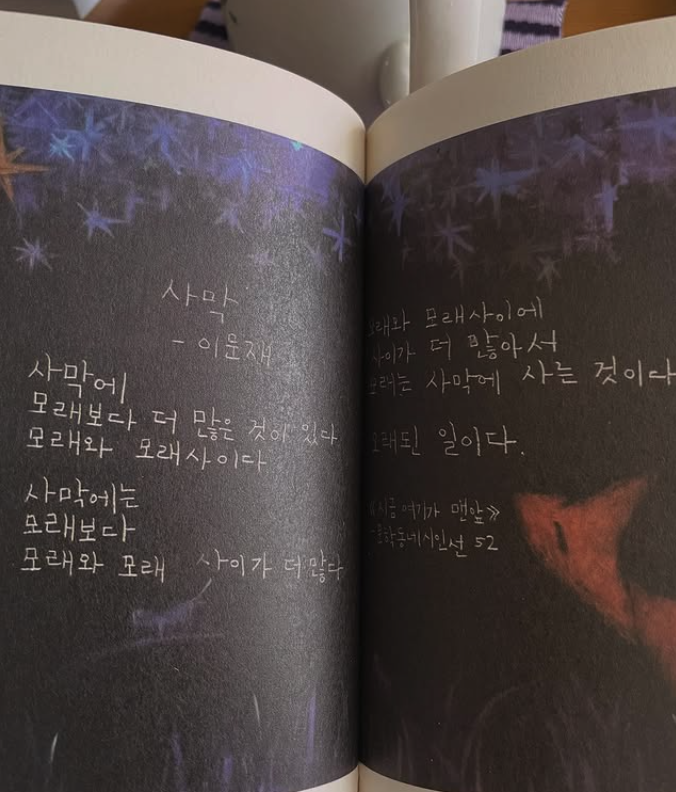 사막
- 이문재
사막에
모래보다 더 많은 것이 있다
모래와 모래사이다
사막에는
모래보다
모래와 모래 사이가 더 많다
모래와 모래사이에
사이가 더 많아서
모래는 사막에 사는 것이다
오래된 일이다.
《지금 여기가 맨앞》
문학동네시인선 52